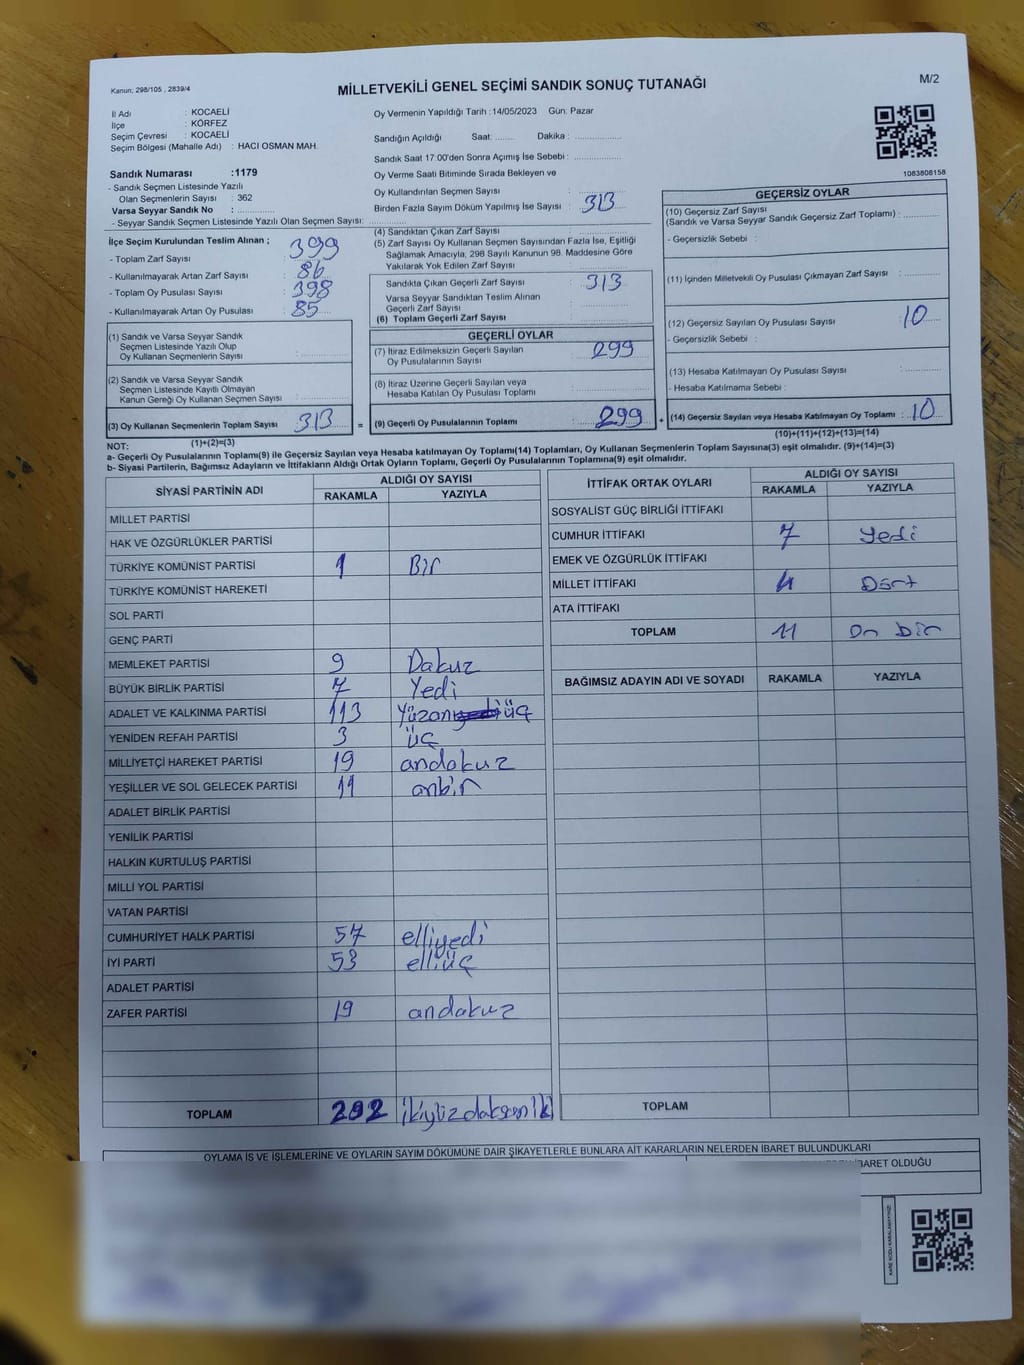 Kanun; 298/105 , 2839/4
MİLLETVEKİLİ GENEL SEÇİMİ SANDIK SONUÇ TUTANAĞI
M/2
İl Adı : KOCAELİ
İlçe : KÖRFEZ
Seçim Çevresi : KOCAELİ
Seçim Bölgesi (Mahalle Adı) : HACI OSMAN MAH.
Sandık Numarası :1179
- Sandık Seçmen Listesinde Yazılı
Olan Seçmenlerin Sayısı : 362
Varsa Seyyar Sandık No : ............
- Seyyar Sandık Seçmen Listesinde Yazılı Olan Seçmen Sayısı: ............
İlçe Seçim Kurulundan Teslim Alınan ;
- Toplam Zarf Sayısı : 399
- Kullanılmayarak Artan Zarf Sayısı : 86
- Toplam Oy Pusulası Sayısı : 398
- Kullanılmayarak Artan Oy Pusulası : 85
(1) Sandık ve Varsa Seyyar Sandık
Seçmen Listesinde Yazılı Olup
Oy Kullanan Seçmenlerin Sayısı : ............
(2) Sandık ve Varsa Seyyar Sandık
Seçmen Listesinde Kayıtlı Olmayan
Kanun Gereği Oy Kullanan Seçmen Sayısı : ............
(3) Oy Kullanan Seçmenlerin Toplam Sayısı : 313 =
(1)+(2)=(3)
Oy Vermenin Yapıldığı Tarih : 14/05/2023 Gün: Pazar
Sandığın Açıldığı Saat: ...... Dakika : ............
Sandık Saat 17.00'den Sonra Açımış İse Sebebi : ............
Oy Verme Saati Bitiminde Sırada Bekleyen ve
Oy Kullandırılan Seçmen Sayısı : ............
Birden Fazla Sayım Döküm Yapılmış İse Sayısı : 313
(4) Sandıktan Çıkan Zarf Sayısı : ............
(5) Zarf Sayısı Oy Kullanan Seçmen Sayısından Fazla İse, Eşitliği
Sağlamak Amacıyla, 298 Sayılı Kanunun 98. Maddesine Göre
Yakılarak Yok Edilen Zarf Sayısı : ............
Sandıkta Çıkan Geçerli Zarf Sayısı : 313
Varsa Seyyar Sandıktan Teslim Alınan
Geçerli Zarf Sayısı : ............
(6) Toplam Geçerli Zarf Sayısı : ............
GEÇERLİ OYLAR
(7) İtiraz Edilmeksizin Geçerli Sayılan
Oy Pusulalarının Sayısı : 299
(8) İtiraz Üzerine Geçerli Sayılan veya
Hesaba Katılan Oy Pusulası Toplamı : ............
(9) Geçerli Oy Pusulalarının Toplamı : 299 +
1083808158
GEÇERSİZ OYLAR
(10) Geçersiz Zarf Sayısı
(Sandık ve Varsa Seyyar Sandık Geçersiz Zarf Toplamı) : ............
- Geçersizlik Sebebi :
(11) İçinden Milletvekili Oy Pusulası Çıkmayan Zarf Sayısı : ............
(12) Geçersiz Sayılan Oy Pusulası Sayısı : 10
- Geçersizlik Sebebi :
(13) Hesaba Katılmayan Oy Pusulası Sayısı : ............
- Hesaba Katılmama Sebebi :
(14) Geçersiz Sayılan veya Hesaba Katılmayan Oy Toplamı : 10
(10)+(11)+(12)+(13)=(14)
NOT:
a- Geçerli Oy Pusulalarının Toplamı(9) ile Geçersiz Sayılan veya Hesaba katılmayan Oy Toplamı(14) Toplamları, Oy Kullanan Seçmenlerin Toplam Sayısına(3) eşit olmalıdır. (9)+(14)=(3)
b- Siyasi Partilerin, Bağımsız Adayların ve İttifakların Aldığı Ortak Oyların Toplamı, Geçerli Oy Pusulalarının Toplamına(9) eşit olmalıdır.
SİYASİ PARTİNİN ADI ALDIĞI OY SAYISI
RAKAMLA YAZIYLA
MİLLET PARTİSİ
HAK VE ÖZGÜRLÜKLER PARTİSİ
TÜRKİYE KOMÜNİST PARTİSİ 1 Bir
TÜRKİYE KOMÜNİST HAREKETİ
SOL PARTİ
GENÇ PARTİ
MEMLEKET PARTİSİ 9 Dakuz
BÜYÜK BİRLİK PARTİSİ 7 Yedi
ADALET VE KALKINMA PARTİSİ 113 Yüzonyediüç
YENİDEN REFAH PARTİSİ 3 üç
MİLLİYETÇİ HAREKET PARTİSİ 19 andokuz
YEŞİLLER VE SOL GELECEK PARTİSİ 11 anbir
ADALET BİRLİK PARTİSİ
YENİLİK PARTİSİ
HALKIN KURTULUŞ PARTİSİ
MİLLİ YOL PARTİSİ
VATAN PARTİSİ
CUMHURİYET HALK PARTİSİ 57 elliyedi
İYİ PARTİ 53 elliüç
ADALET PARTİSİ
ZAFER PARTİSİ 19 andokuz
TOPLAM 292 ikiyüzdaksanik
İTTİFAK ORTAK OYLARI ALDIĞI OY SAYISI
RAKAMLA YAZIYLA
SOSYALİST GÜÇ BİRLİĞİ İTTİFAKI
CUMHUR İTTİFAKI 7 Yedi
EMEK VE ÖZGÜRLÜK İTTİFAKI
MİLLET İTTİFAKI 4 Dört
ATA İTTİFAKI
TOPLAM 11 On bir
BAĞIMSIZ ADAYIN ADI VE SOYADI RAKAMLA YAZIYLA
TOPLAM
OYLAMA İŞ VE İŞLEMLERİNE VE OYLARIN SAYIM DÖKÜMÜNE DAİR ŞİKAYETLERLE BUNLARA AİT KARARLARIN NELERDEN İBARET BULUNDUKLARI
İBARET OLDUĞU
KARE KODU KARALAMAYINIZ!